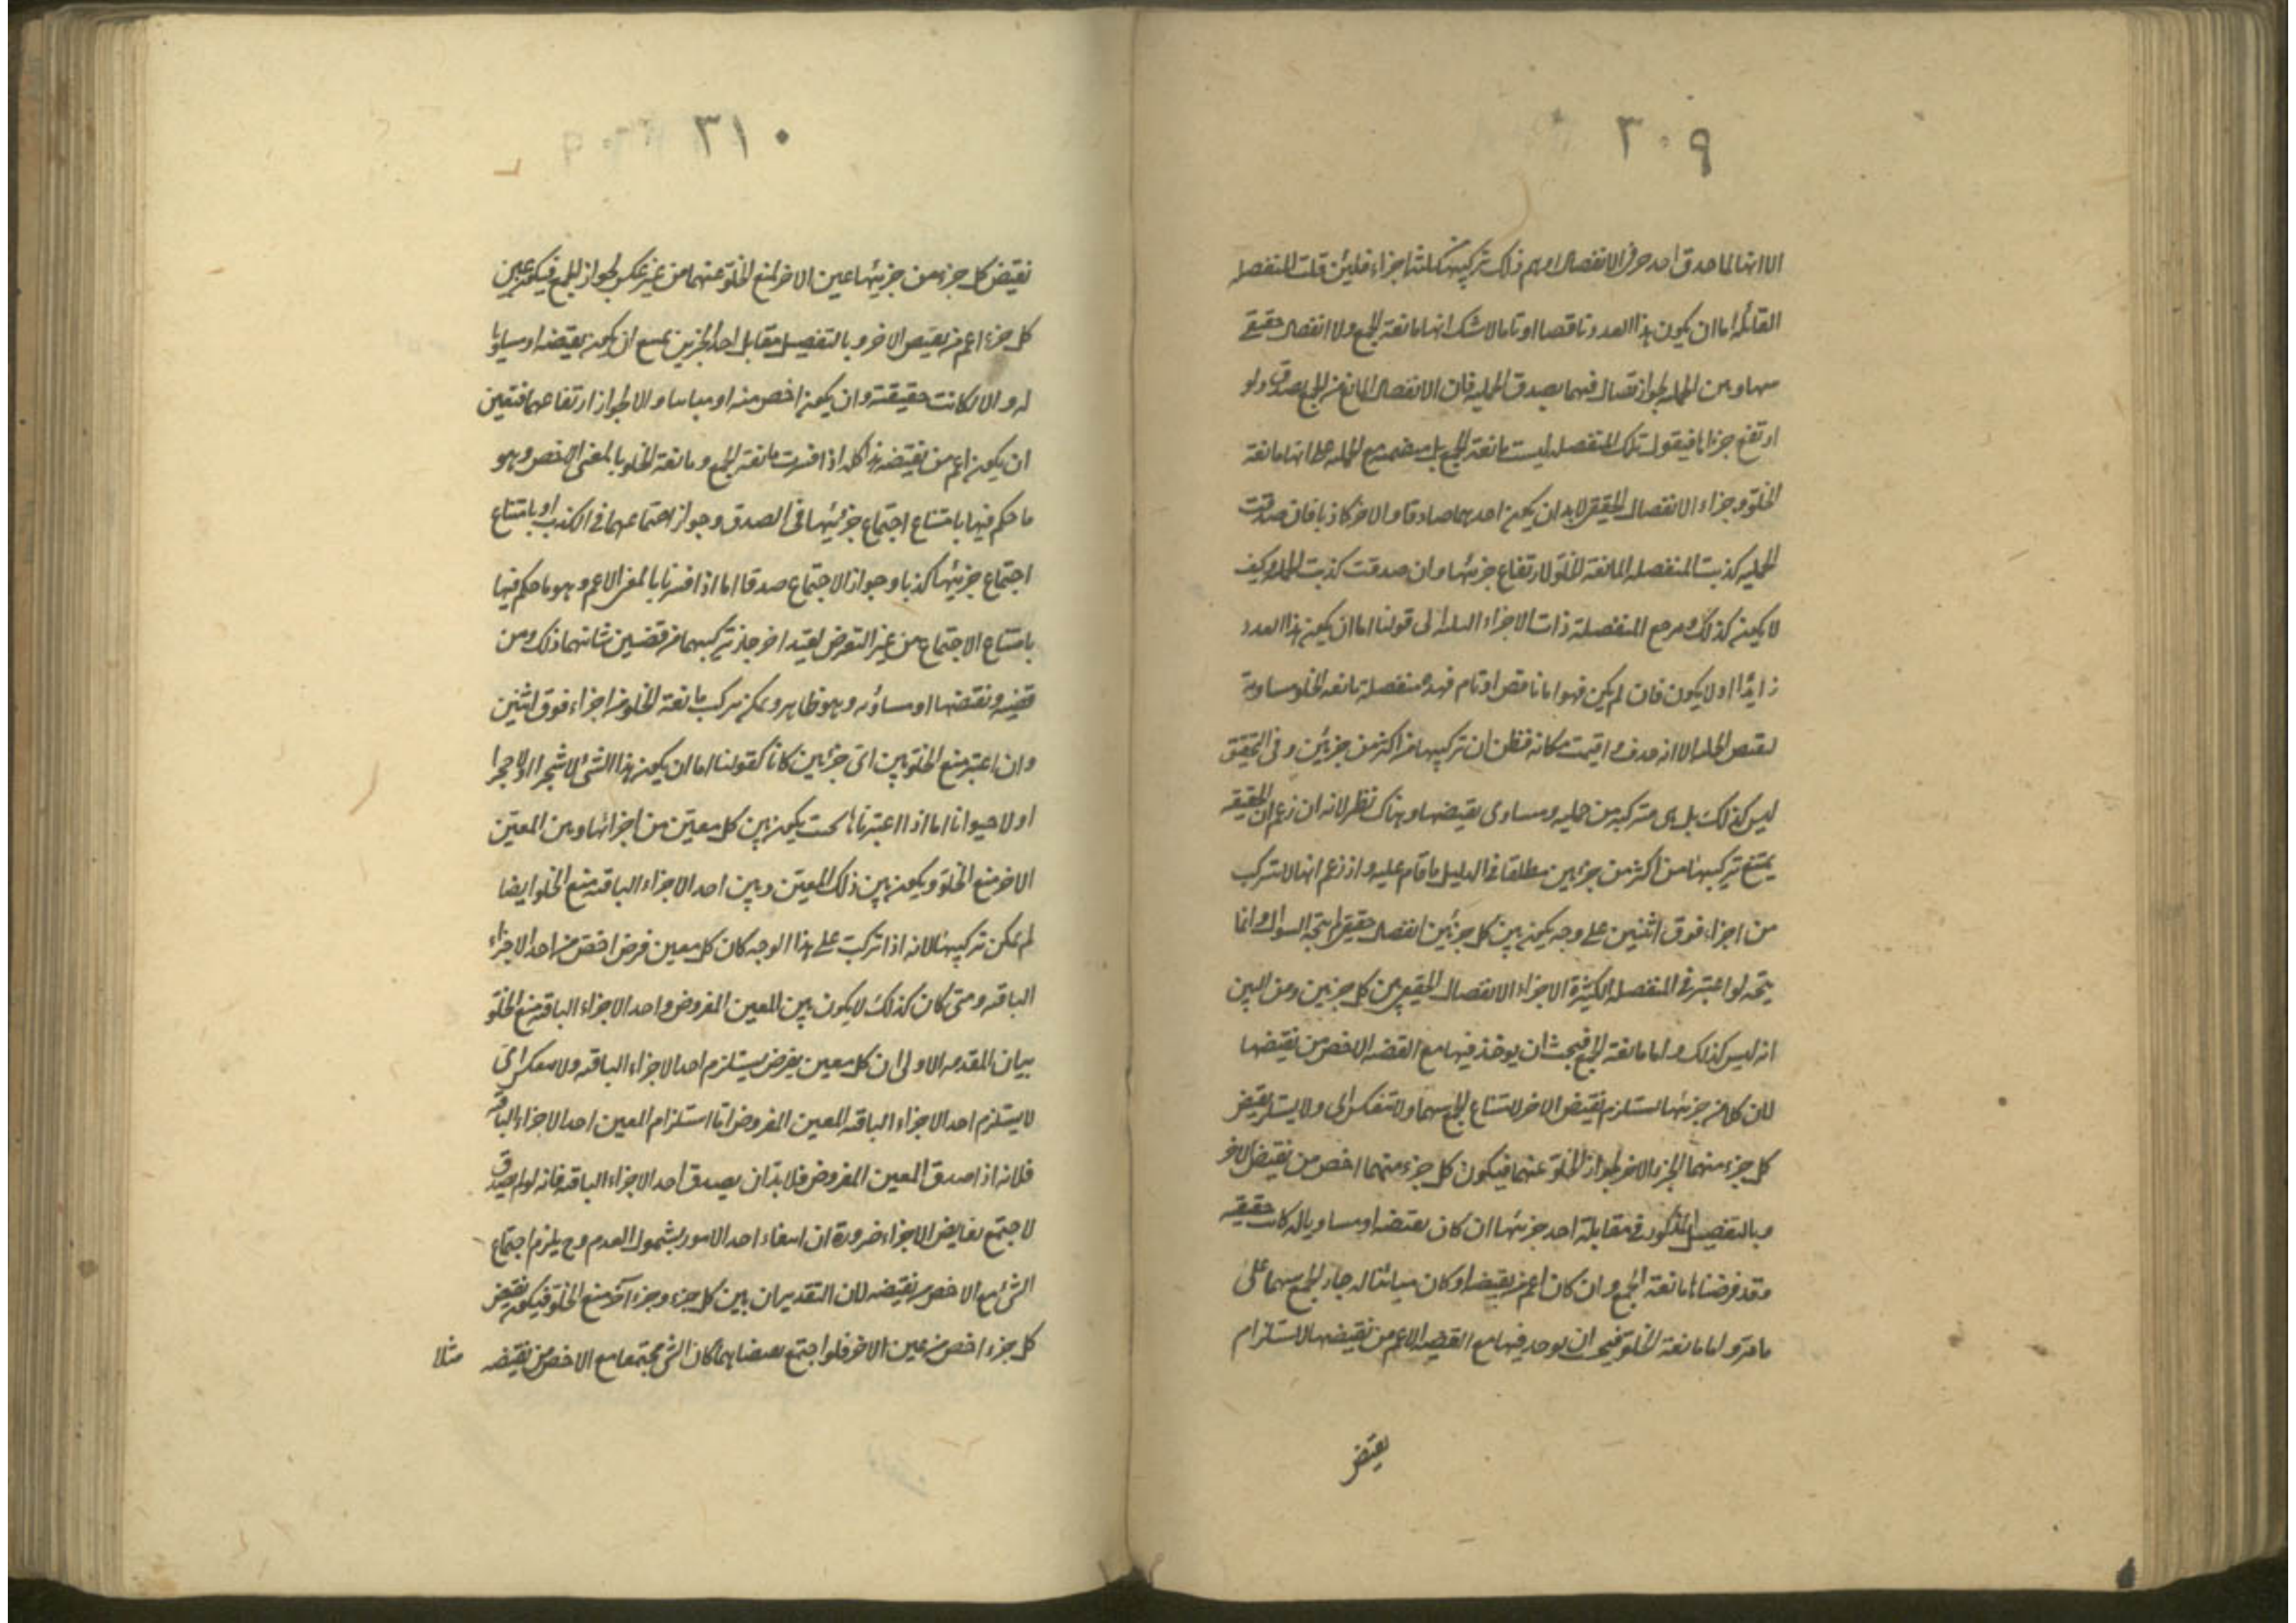 ٣٠٩
الا انها لما حذف احد حرفى الانفصال اوهم ذلك تركيبها من ثلثة اجزاء فلئن قلت المنفصله
القائله اما ان يكون هذا العدد ناقصا او تاما لا شك انها مانعة الجمع ولا انفصال حقيقى
بينها وبين الحمليه لجواز فيهما يصدق الحمليه فان الانفصال المانع من الجمع يصدق ولو
ارتفع جزءاها فيقول تلك المنفصله ليست مانعة الجمع بل مع الحمليه انها مانعة
الخلو وجزاء الانفصال الحقيقى لابد ان يكون احدهما صادقا والاخر كاذبا فان صدقت
الحمليه كذبت المنفصله المانعة الخلو لارتفاع جزئيها وان صدقت كذبت الحمليه وكيف
لا يكون كذلك ومرجع المنفصلة ذات الاجزاء الثلثه الى قولنا اما ان يكون هذا العدد
زايدا او لا يكون فان لم يكن فهو اما ناقص او تام فهذه منفصلة مانعة الخلو مساوية
لنقيض الحمليه الا انه حذف واقيمت مكانه فظن ان تركيبها من اكثر من جزئين وفى التحقيق
ليس كذلك بل هى متركبه من حمليه ومساوى نقيضها وهناك نظر لانه ان زعم ان الحقيقيه
يمتنع تركيبها من اكثر من جزئين مطلقا فالدليل ما قام عليه وان زعم انها لا تتركب
من اجزاء فوق اثنين على وجه يكون بين كل جزئين انفصال حقيقى لم يتجه السؤال وانما
يتجه لو اعتبر فى المنفصله الكثيرة الاجزاء الانفصال الحقيقى بين كل جزئين ومن البين
انه ليس كذلك واما مانعة الجمع فيجب ان يوخذ فيها مع القضيه الاخص من نقيضها
لان كلا من جزئيها يستلزم نقيض الاخر لامتناع الجمع بينهما ولا تنعكس اى ولا يستلزم نقيض
كل جزء منهما الجزء الاخر لجواز الخلو عنهما فيكون كل جزء منهما اخص من نقيض الاخر
وبالتفصيل المذكور فى مقابلة احد جزئيها ان كان نقيضه او مساويا له كانت حقيقيه
وقد فرضناها مانعة الجمع وان كان اعم من نقيضه او كان مباينا له جاز الجمع بينهما على
ما مر واما مانعة الخلو فيجب ان يوخذ فيها مع القضيه الاعم من نقيضها لاستلزام
نقيض
٣١٠
نقيض كل جزء من جزئيها عين الاخر لمنع الخلو عنهما من غير عكس لجواز الجمع فيكون عين
كل جزء اعم من نقيض الاخر وبالتفصيل مقابل احد الجزئين يمتنع ان يكون نقيضه او مساويا
له والا لكانت حقيقية وان يكون اخص منه او مباينا والا لجواز ارتفاعهما فتعين
ان يكون اعم من نقيضه هذا كله اذا فسرت مانعة الجمع ومانعة الخلو بالمعنى الاخص وهو
ما حكم فيها بامتناع اجتماع جزئيها فى الصدق وجواز اجتماعهما فى الكذب او بامتناع
اجتماع جزئيها كذبا وجواز الاجتماع صدقا اما اذا فسرناها بالمعنى الاعم وهو ما حكم فيها
بامتناع الاجتماع من غير التعرض لقيد اخر جاز تركيبهما من قضيتين شانهما ذلك ومن
قضيه ونقيضها او مساويه وهو ظاهر ويمكن تركيب مانعة الخلو من اجزاء فوق اثنين
وان اعتبر منع الخلو بين اى جزئين كانا كقولنا اما ان يكون هذا الشئ لا شجرا او لا حجرا
او لا حيوانا اما اذا اعتبرناها بحيث يكون بين كل معين من اجزائها وبين المعين
الاخر منع الخلو ويكون بين ذلك المعين وبين احد الاجزاء الباقيه منع الخلو ايضا
لم يمكن تركيبها لانه اذا تركبت على هذا الوجه كان كل معين فرض اخص من احد الاجزاء
الباقيه ومتى كان كذلك لا يكون بين المعين المفروض واحد الاجزاء الباقيه منع الخلو
بيان المقدمه الاولى ان كل معين يفرض يستلزم احد الاجزاء الباقيه ولا ينعكس اى
لا يستلزم احد الاجزاء الباقيه المعين المفروض اما استلزام المعين احد الاجزاء الباقيه
فلانه اذا صدق المعين المفروض فلابد ان يصدق احد الاجزاء الباقيه فانه لو لم يصدق
لاجتمع نقايض الاجزاء ضرورة ان انتفاء احد الامور بشمول العدم وح يلزم اجتماع
الشئ مع الاخص من نقيضه لان التقدير ان بين كل جزء وجزء آخر منع الخلو فيكون نقيض
كل جزء اخص من عين الاخر فلو اجتمع نقيضاهما كان الشئ مجتمعا مع الاخص من نقيضه
مثلا